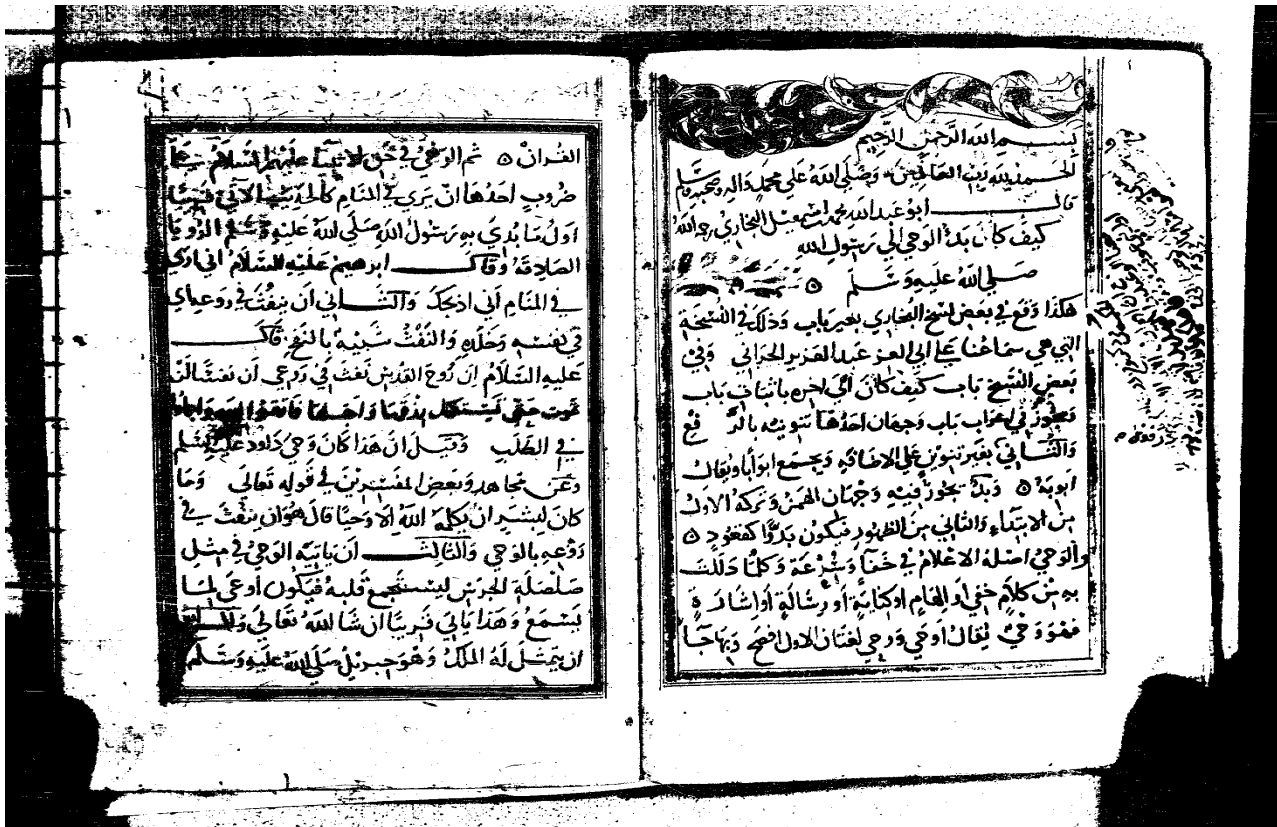 بسم الله الرحمن الرحيم
الحمد لله رب العالمين وصلى الله على محمد واله وصحبه وسلم
قال ابو عبد الله محمد بن اسمعيل البخاري رحمه الله
كيف كان بدء الوحي الى رسول الله
صلى الله عليه وسلم ٥
هكذا وقع في بعض نسخ البخاري بغير باب وذلك في النسخة
التي هي سماعنا على ابي العز عبد العزيز الحراني وفي
بعض النسخ باب كيف كان الى اخره باثبات باب
ويجوز في اعراب باب وجهان احدهما تنوينه بالرفع
والثاني بغير تنوين على الاضافه ويجمع ابوابا ويقال
ابوبة ٥ وبدء يجوز فيه وجهان الهمز وتركه الاول
من الابتداء والثاني من الظهور فيكون بدوا كقعود ٥
والوحي اصله الاعلام في خفآ وسرعة وكلما دللت
به من كلام خفي او الهام او كتابة او رسالة او اشارة
فهو وحي يقال اوحى ووحى لغتان الاول افصح وبها جآ
القران ٥ ثم الوحي في حق الانبيآ عليهم السلام على
ضروب احدها ان يرى في المنام كالحديث الآتي قريبا
اول ما بدي به رسول الله صلى الله عليه وسلم الرويا
الصادقه وقال ابرهيم عليه السلام اني ارى
في المنام اني اذبحك والثاني ان ينفث في روعه اي
في نفسه وخلده والنفث شبيه بالنفخ قال
عليه السلام ان روح القدس نفث في روعي ان نفسا لن
تموت حتى تستكمل رزقها واجلها فاتقوا الله واجملوا
في الطلب وقيل ان هذا كان وحي داود عليه السلم
وعن مجاهد وبعض المفسرين في قوله تعالى وما
كان لبشر ان يكلمه الله الا وحيا قال هو ان ينفث في
روعه بالوحي والثالث ان ياتيه الوحي في مثل
صلصلة الجرس ليستجمع قلبه فيكون اوعى لما
يسمع وهذا ياتي قريبا ان شا الله تعالى والرابع
ان يتمثل له الملك وهو جبريل صلى الله عليه وسلم